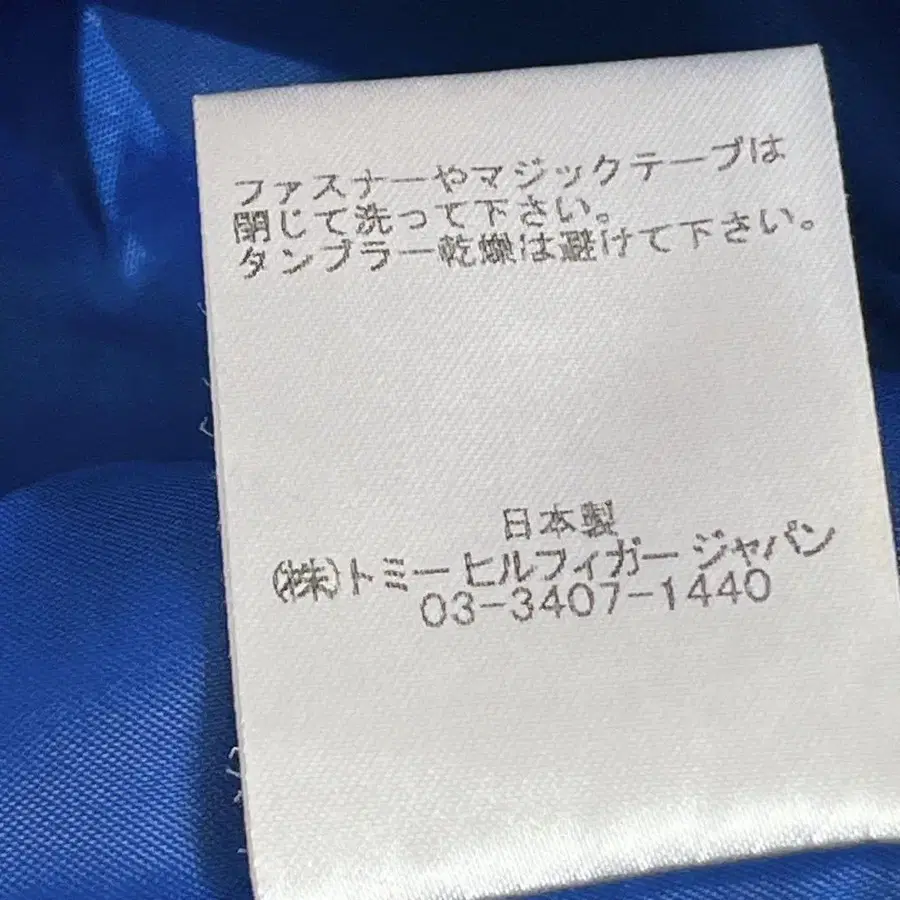 ファスナーやマジックテープは
閉じて洗って下さい。
タンブラー乾燥は避けて下さい。
日本製
(株)トミーヒルフィガージャパン
03-3407-1440